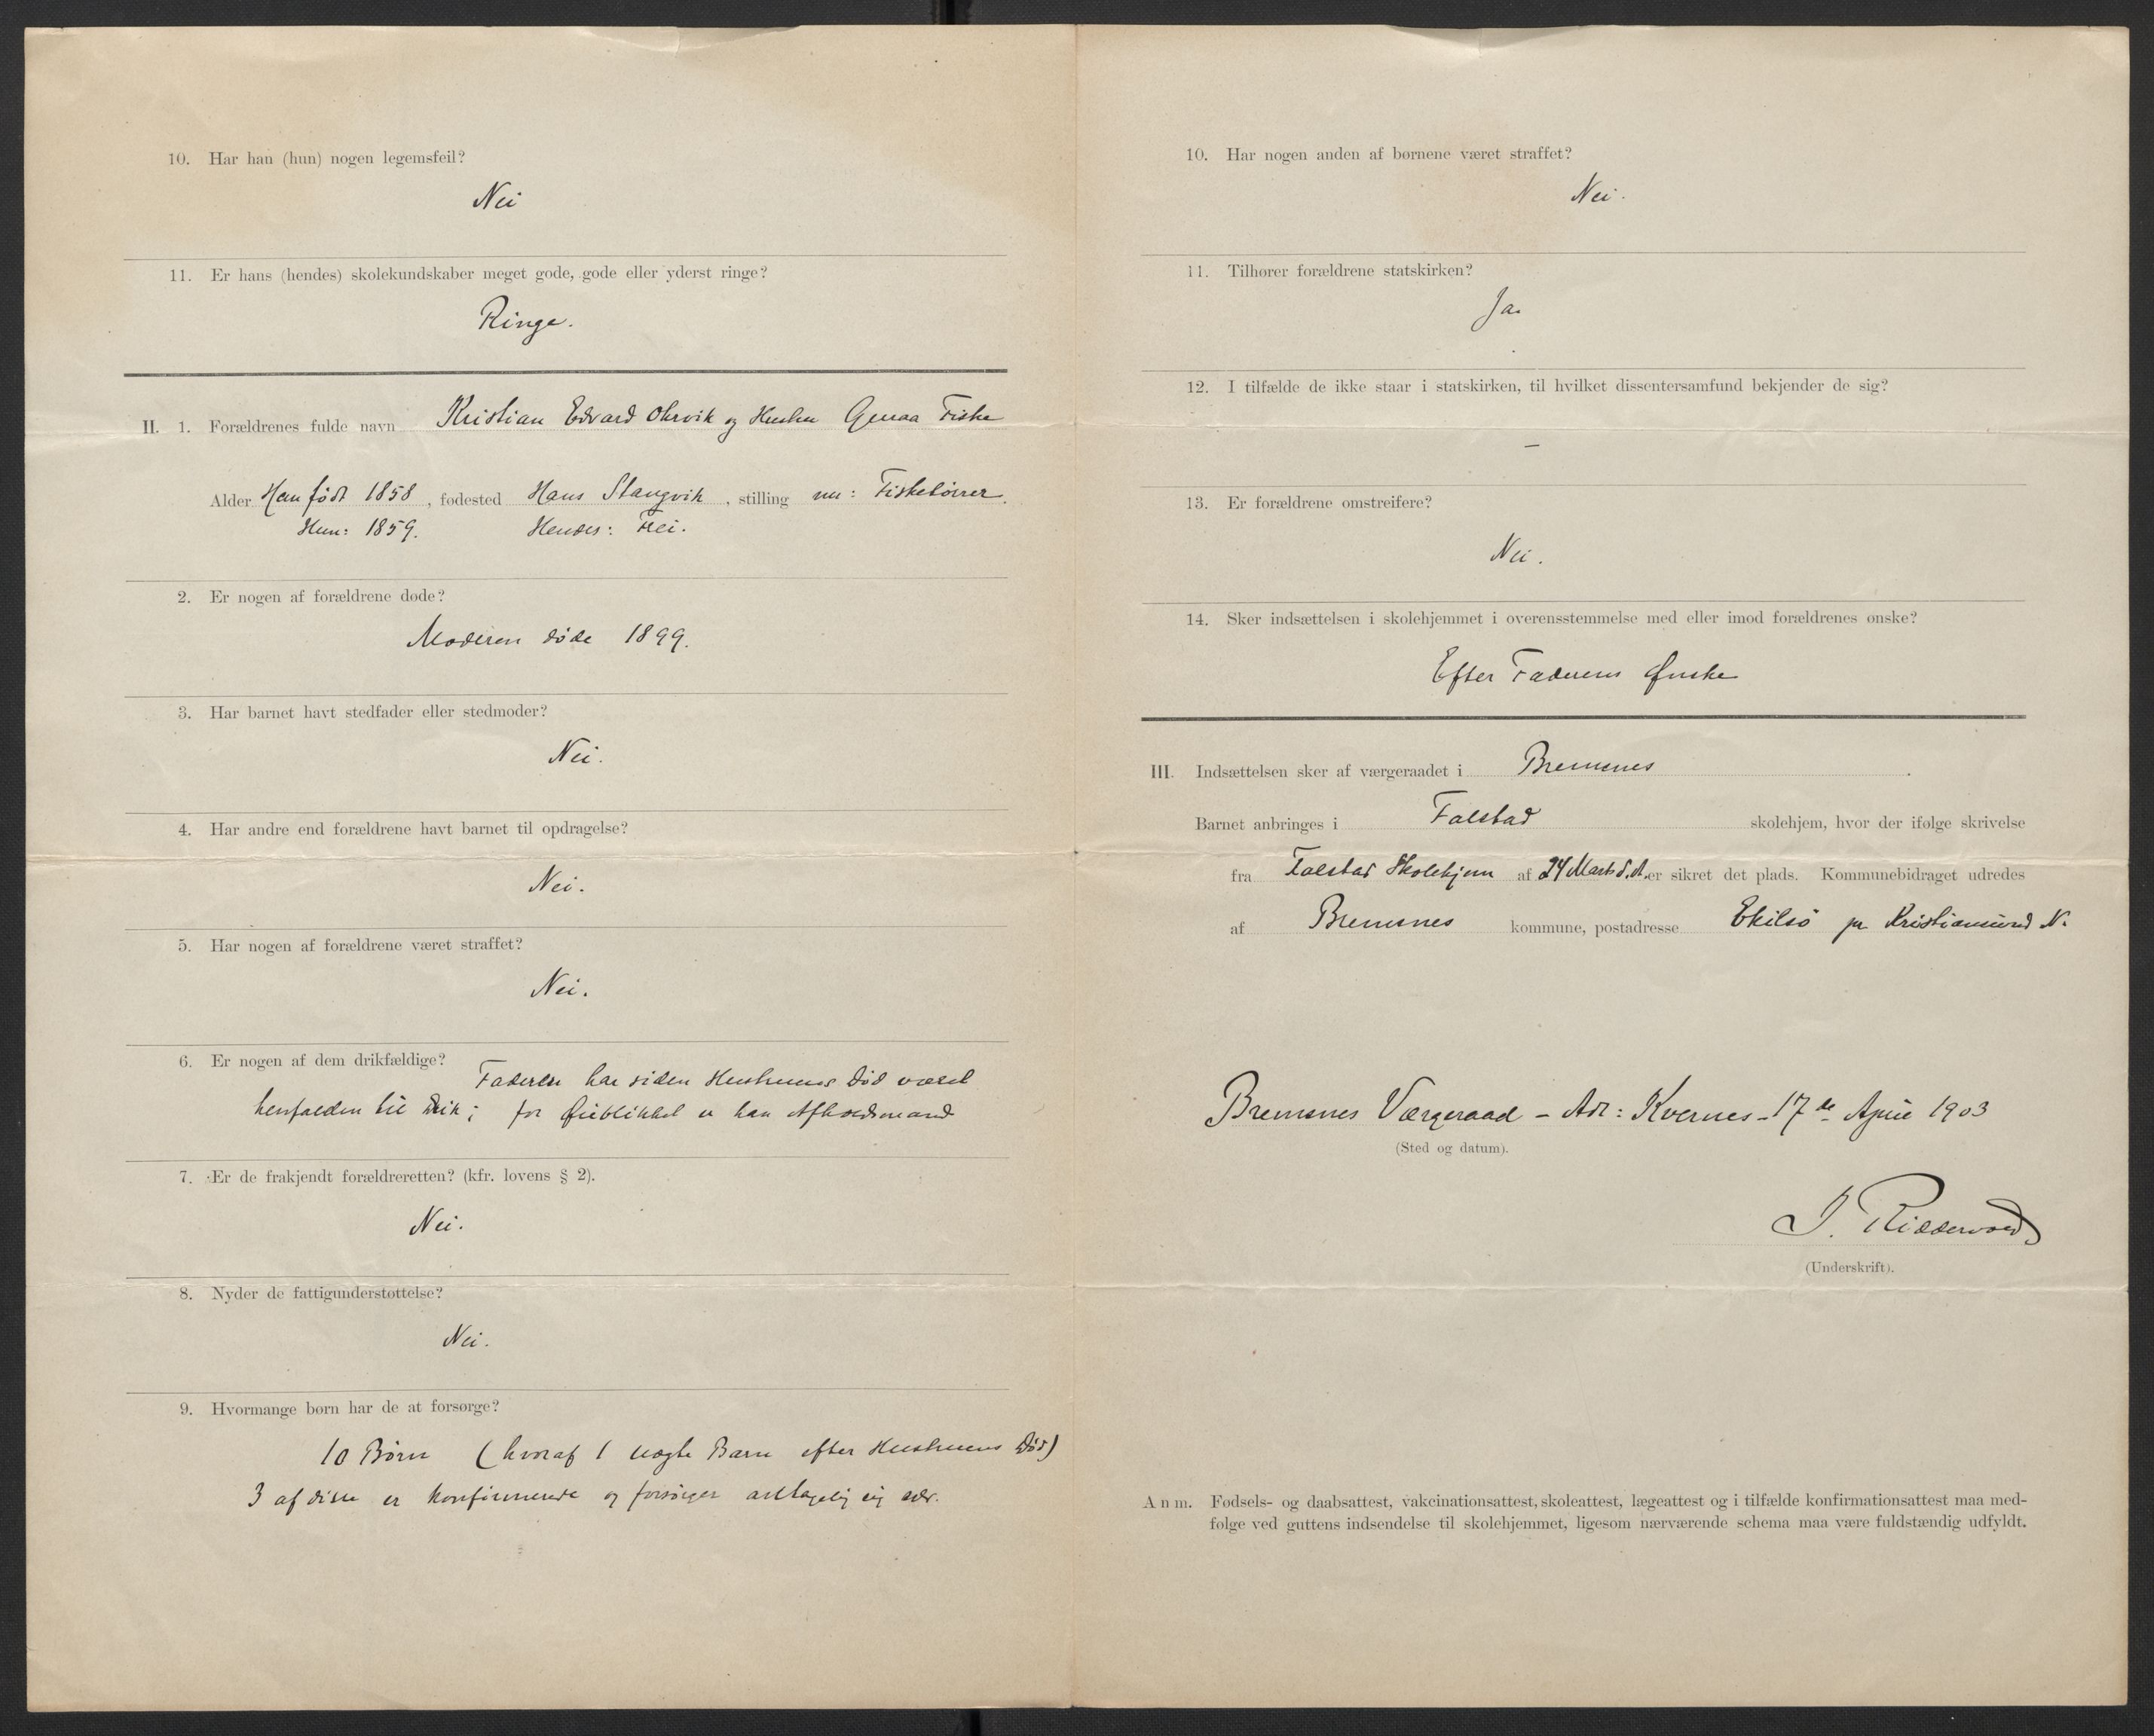 10. Har han (hun) nogen legemsfeil?
Nei
11. Er hans (hendes) skolekundskaber meget gode, gode eller yderst ringe?
Ringe.
II. 1. Forældrenes fulde navn Kristian Edvard Ohrvik og Hustru Fiske
Alder Han født 1858, fødested Hans Stangvik, stilling nu: Fisketörrer.
Hun: 1859. Hendes: Frei.
2. Er nogen af forældrene døde?
Moderen døde 1899.
3. Har barnet havt stedfader eller stedmoder?
Nei.
4. Har andre end forældrene havt barnet til opdragelse?
Nei.
5. Har nogen af forældrene været straffet?
Nei.
6. Er nogen af dem drikfældige?
Faderen har siden Hustruens Død været
henfalden til Drik; for Øieblikket er han Afholdsmand
7. Er de frakjendt forældreretten? (kfr. lovens § 2).
Nei.
8. Nyder de fattigunderstøttelse?
Nei.
9. Hvormange børn har de at forsørge?
10 Børn (hvoraf 1 uægte Barn efter Hustruens Død)
3 af disse er konfirmerede og forsörger sig selv.
10. Har nogen anden af børnene været straffet?
Nei.
11. Tilhører forældrene statskirken?
Ja.
12. I tilfælde de ikke staar i statskirken, til hvilket dissentersamfund bekjender de sig?
—
13. Er forældrene omstreifere?
Nei.
14. Sker indsættelsen i skolehjemmet i overensstemmelse med eller imod forældrenes ønske?
Efter Faderens Ønske
III. Indsættelsen sker af værgeraadet i Bremsnes
Barnet anbringes i Falstad skolehjem, hvor der ifølge skrivelse
fra Falstad Skolehjem af 24 Marts d.A. er sikret det plads. Kommunebidraget udredes
af Bremsnes kommune, postadresse Ekilsö pr Kristiansund N.
Bremsnes Værgeraad - Adr: Kvernes - 17de April 1903
(Sted og datum).
J. Riddervold
(Underskrift).
Anm. Fødsels- og daabsattest, vakcinationsattest, skoleattest, lægeattest og i tilfælde konfirmationsattest maa med-
følge ved guttens indsendelse til skolehjemmet, ligesom nærværende schema maa være fuldstændig udfyldt.